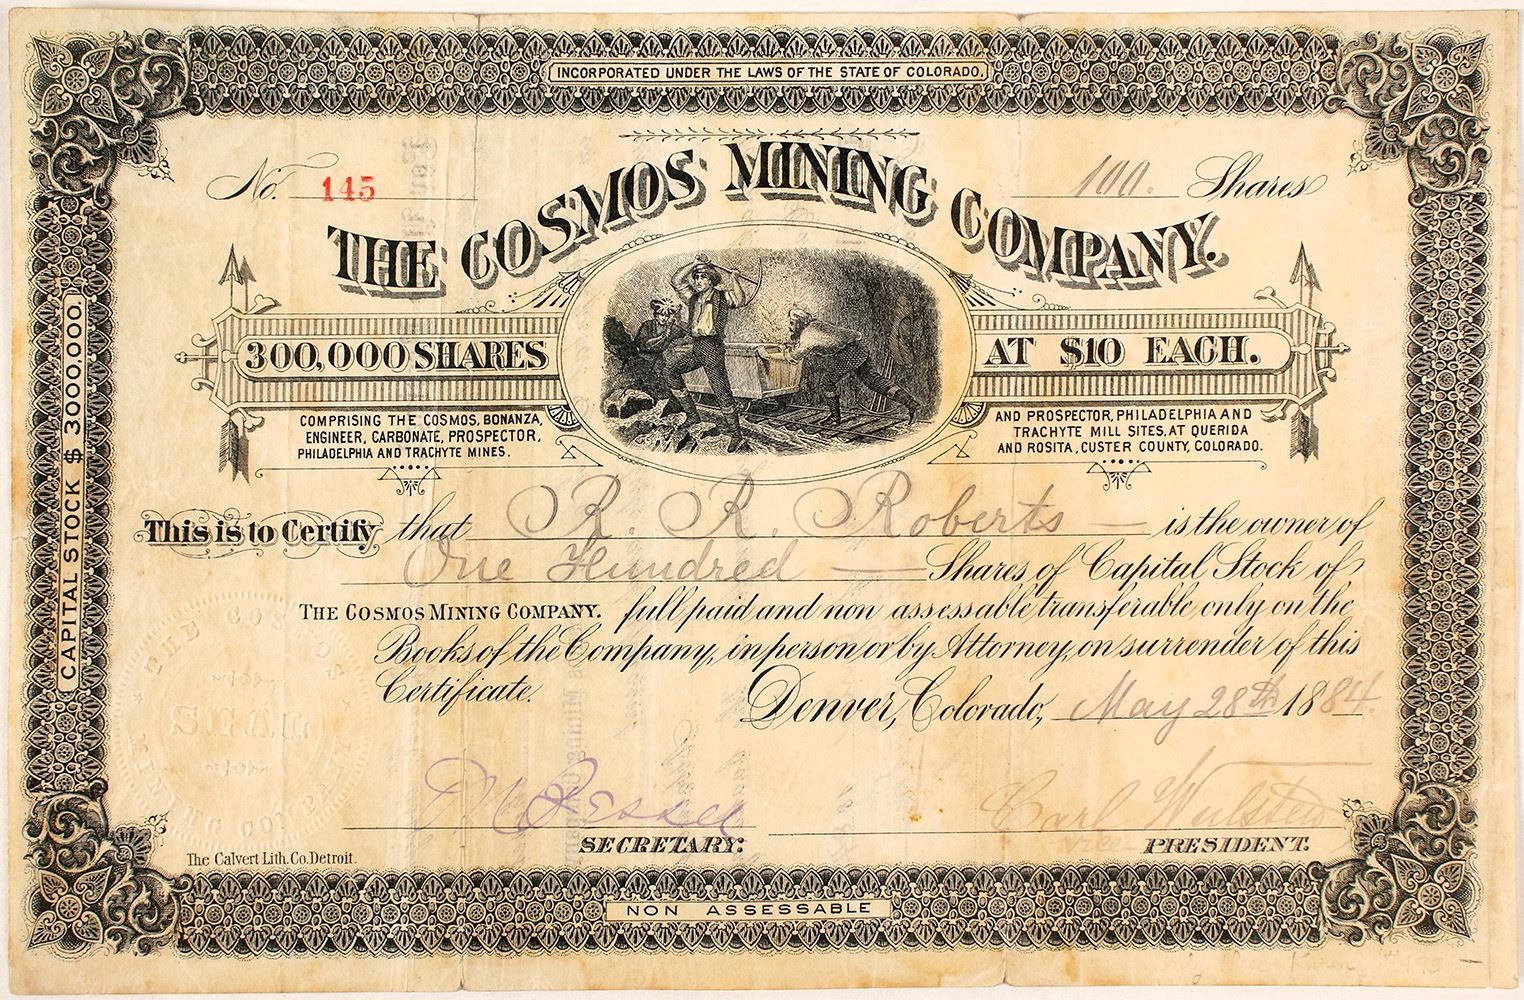 INCORPORATED UNDER THE LAWS OF THE STATE OF COLORADO.
No. 145
100. Shares
THE COSMOS MINING COMPANY.
300,000 SHARES AT $10 EACH.
COMPRISING THE COSMOS, BONANZA,
ENGINEER, CARBONATE, PROSPECTOR,
PHILADELPHIA AND TRACHYTE MINES.
AND PROSPECTOR, PHILADELPHIA AND
TRACHYTE MILL SITES, AT QUERIDA
AND ROSITA, CUSTER COUNTY, COLORADO.
CAPITAL STOCK $ 3000.000.
This is to Certify that R. R. Roberts is the owner of
One Hundred Shares of Capital Stock of
THE COSMOS MINING COMPANY. full paid and non assessable transferable only on the
Books of the Company, in person or by Attorney, on surrender of this
Certificate.
Denver, Colorado, May 28th 1884.
THE COSMOS MINING
SEAL
COLORADO
Carl Wulsten
SECRETARY.
vice PRESIDENT.
The Calvert Lith. Co. Detroit.
NON ASSESSABLE